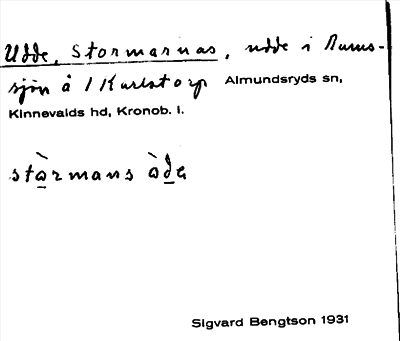 Udde, Stormarnas, udde i Rums-
sjön å 1 Karlstorp Almundsryds sn,
Kinnevalds hd, Kronob. l.
stàrmans òdɛ
Sigvard Bengtson 1931